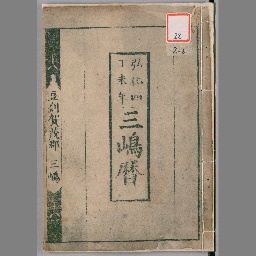 弘化四
丁未年
三嶋暦
豆州賀茂郡 三嶋
22